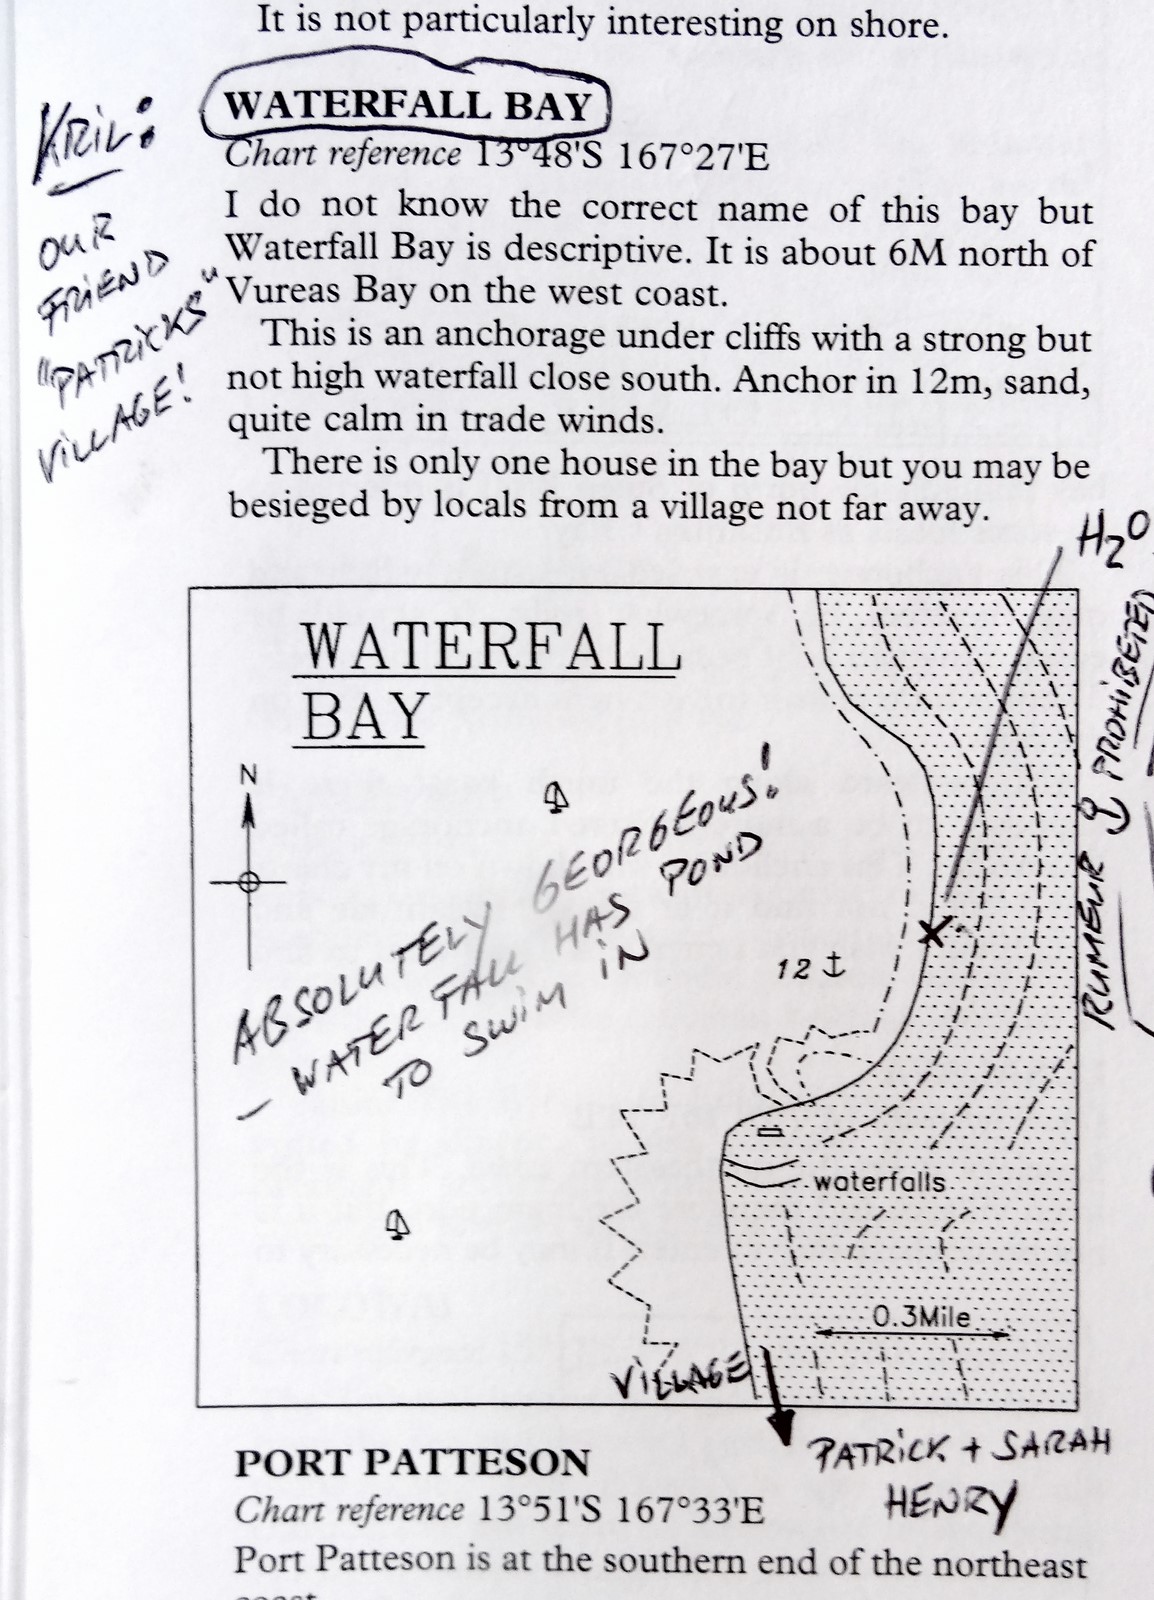 It is not particularly interesting on shore.
WATERFALL BAY
Chart reference 13°48'S 167°27'E
I do not know the correct name of this bay but
Waterfall Bay is descriptive. It is about 6M north of
Vureas Bay on the west coast.
This is an anchorage under cliffs with a strong but
not high waterfall close south. Anchor in 12m, sand,
quite calm in trade winds.
There is only one house in the bay but you may be
besieged by locals from a village not far away.
KRIL:
OUR
FRIEND
"PATRICKS"
VILLAGE!
H2O
RUMEUR ⚓ PROHIBETED
WATERFALL
BAY
N
ABSOLUTELY GEORGEOUS!
– WATERFALL HAS POND
TO SWIM IN
12
waterfalls
0.3Mile
VILLAGE
PATRICK + SARAH
HENRY
PORT PATTESON
Chart reference 13°51'S 167°33'E
Port Patteson is at the southern end of the northeast